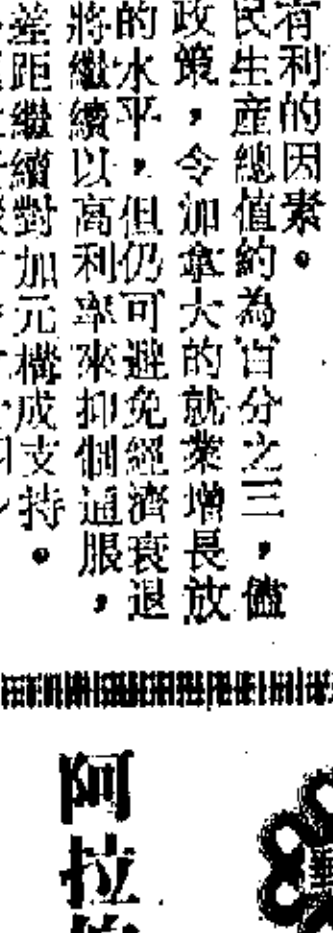 有利的因素。
民生產總值約為百分之三，儘
政策，令加拿大的就業增長放
的水平，但仍可避免經濟衰退
將繼續以高利率來抑制通服，
差距繼續對加元構成支持。
阿拉